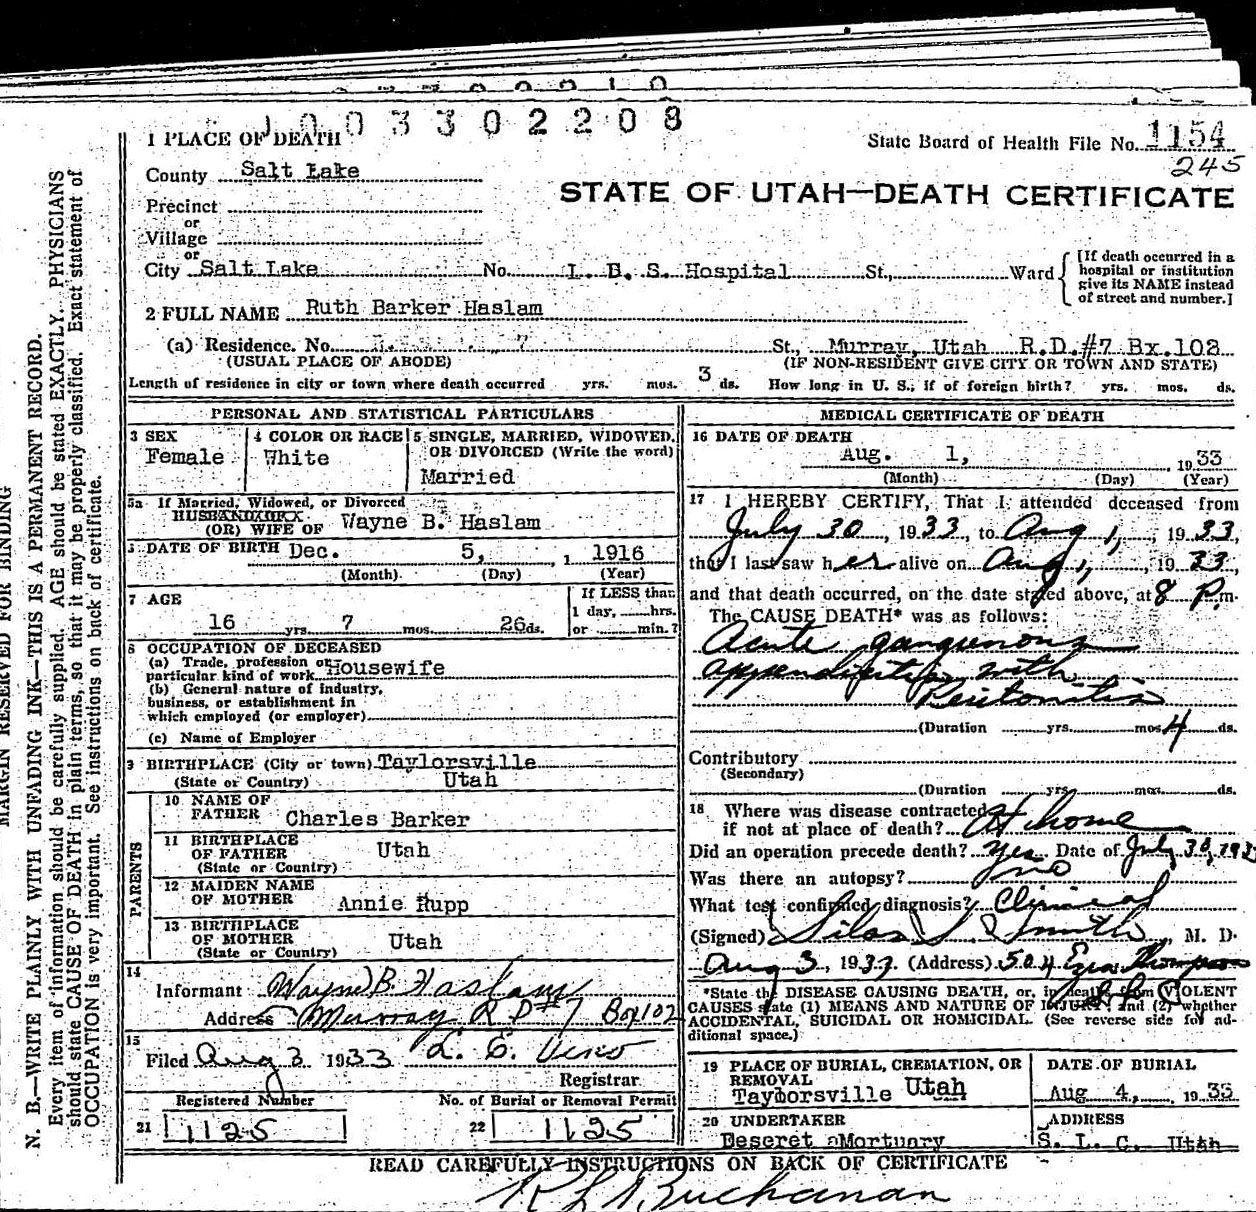 1003302208
1 PLACE OF DEATH
State Board of Health File No. 1154
245
County Salt Lake
STATE OF UTAH—DEATH CERTIFICATE
Precinct
or
Village
or
City Salt Lake No. L. D. S. Hospital St., Ward
[If death occurred in a
hospital or institution
give its NAME instead
of street and number.]
2 FULL NAME Ruth Barker Haslam
(a) Residence. No. 7 St., Murray, Utah R.D.#7 Bx.102
(USUAL PLACE OF ABODE) (IF NON-RESIDENT GIVE CITY OR TOWN AND STATE)
Length of residence in city or town where death occurred yrs. mos. 3 ds. How long in U. S., if of foreign birth? yrs. mos. ds.
PERSONAL AND STATISTICAL PARTICULARS
3 SEX
Female
4 COLOR OR RACE
White
5 SINGLE, MARRIED, WIDOWED,
OR DIVORCED (Write the word)
Married
5a If Married, Widowed, or Divorced
HUSBAND
(OR) WIFE OF Wayne B. Haslam
DATE OF BIRTH Dec. 5, , 1916
(Month) (Day) (Year)
7 AGE
16 yrs. 7 mos. 26 ds.
If LESS than
1 day, hrs.
or min.?
8 OCCUPATION OF DECEASED
(a) Trade, profession or
particular kind of work Housewife
(b) General nature of industry,
business, or establishment in
which employed (or employer)
(c) Name of Employer
9 BIRTHPLACE (City or town) Taylorsville
(State or Country) Utah
PARENTS
10 NAME OF
FATHER Charles Barker
11 BIRTHPLACE
OF FATHER Utah
(State or Country)
12 MAIDEN NAME
OF MOTHER Annie Rupp
13 BIRTHPLACE
OF MOTHER Utah
(State or Country)
14
Informant Wayne B. Haslam
Address Murray R D #7 Box 102
15
Filed Aug 3 1933
Registrar
Registered Number No. of Burial or Removal Permit
21 1125 22 1125
MEDICAL CERTIFICATE OF DEATH
16 DATE OF DEATH
Aug. 1, , 1933
(Month) (Day) (Year)
17 I HEREBY CERTIFY, That I attended deceased from
July 30, 1933, to Aug 1, , 1933,
that I last saw her alive on Aug 1, , 1933,
and that death occurred, on the date stated above, at 8 P.m.
The CAUSE DEATH* was as follows:
Acute gangrenous
appendicitis with
Peritonitis
(Duration yrs. mos. 4 ds.
Contributory
(Secondary)
(Duration yrs. mos. ds.
18 Where was disease contracted
if not at place of death? At home
Did an operation precede death? Yes Date of July 30, 1933
Was there an autopsy? no
What test confirmed diagnosis? Clinical
(Signed) Silas S. Smith, M. D.
Aug 3, 1933 (Address) 504 Ezra Thompson
*State the DISEASE CAUSING DEATH, or, in death from VIOLENT
CAUSES state (1) MEANS AND NATURE OF INJURY; and (2) whether
ACCIDENTAL, SUICIDAL OR HOMICIDAL. (See reverse side for ad-
ditional space.)
19 PLACE OF BURIAL, CREMATION, OR
REMOVAL
Taylorsville Utah
DATE OF BURIAL
Aug 4, 1933
20 UNDERTAKER
Deseret Mortuary
ADDRESS
S. L. C. Utah
READ CAREFULLY INSTRUCTIONS ON BACK OF CERTIFICATE
Buchanan
MARGIN RESERVED FOR BINDING
N. B.—WRITE PLAINLY WITH UNFADING INK—THIS IS A PERMANENT RECORD.
Every item of information should be carefully supplied. AGE should be stated EXACTLY. PHYSICIANS
should state CAUSE OF DEATH in plain terms, so that it may be properly classified. Exact statement of
OCCUPATION is very important. See instructions on back of certificate.